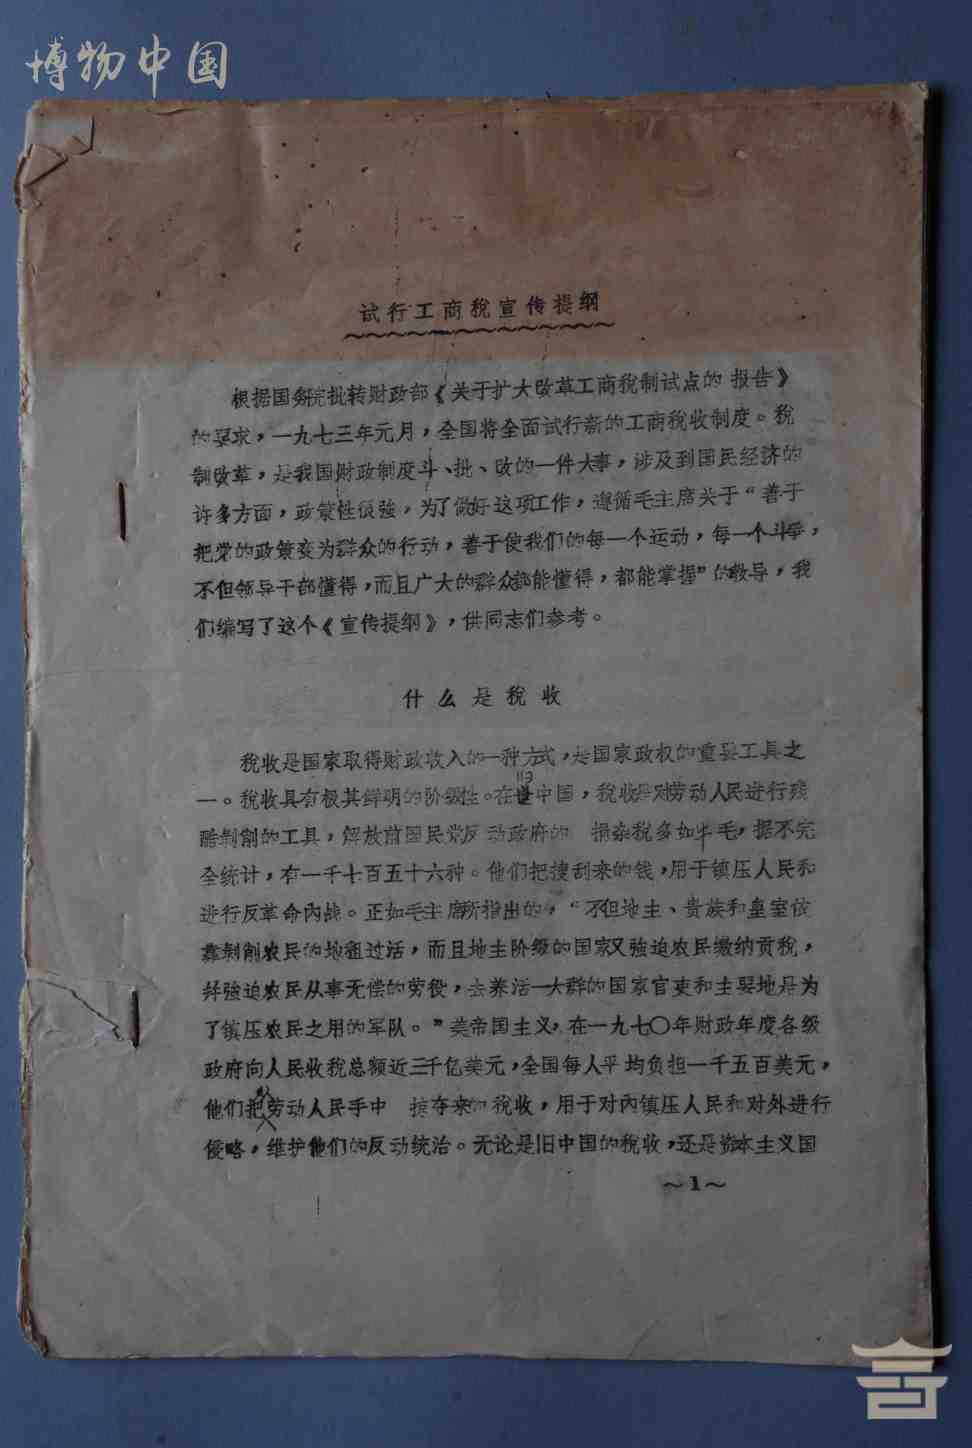 博物中国
试行工商税宣传提纲
根据国务院批转财政部《关于扩大改革工商税制试点的报告》
的要求，一九七三年元月，全国将全面试行新的工商税收制度。税
制改革，是我国财政制度斗、批、改的一件大事，涉及到国民经济的
许多方面，政策性很強，为了做好这项工作，遵循毛主席关于“善于
把党的政策变为群众的行动，善于使我们的每一个运动，每一个斗爭，
不但领导干部懂得，而且广大的群众都能懂得，都能掌握”的教导，我
们编写了这个《宣传提纲》，供同志们参考。
什么是税收
税收是国家取得财政收入的一种方式，是国家政权的重要工具之
一。税收具有极其鲜明的阶级性。在旧中国，税收是对劳动人民进行残
酷剝削的工具，解放前国民党反动政府的 捐杂税多如牛毛，据不完
全统计，有一千七百五十六种。他们把搜刮来的钱，用于镇压人民和
进行反革命內战。正如毛主席所指出的，“不但地主、贵族和皇室依
靠剝削农民的地租过活，而且地主阶级的国家又強迫农民缴纳贡税，
并強迫农民从事无偿的劳役，去养活一大群的国家官吏和主要地是为
了镇压农民之用的军队。”美帝国主义，在一九七〇年财政年度各级
政府向人民收税总额近三千亿美元，全国每人平均负担一千五百美元，
他们把从劳动人民手中 掠夺来的税收，用于对內镇压人民和对外进行
侵略，维护他们的反动统治。无论是旧中国的税收，还是资本主义国
～1～